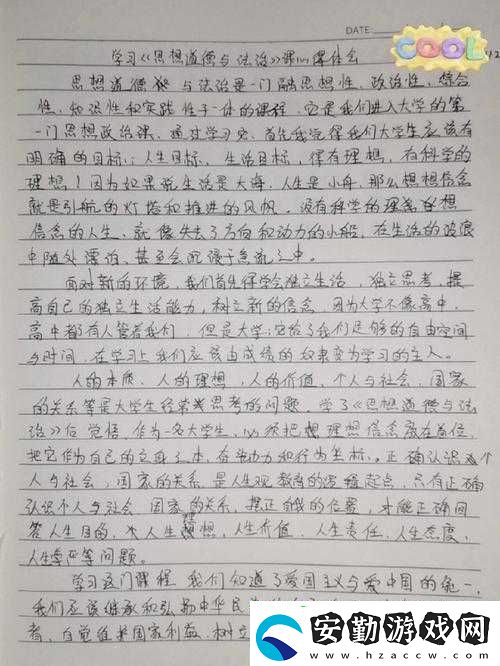 DATE:
COOL
学习《思想道德与法治》课心得体会
思想道德和与法治是一门融思想性、政治性、综合
性、知识性和实践性于一体的课程，它是我们进入大学的第
一门思想政治课，通过学习完，首先我觉得我们大学生应该有
明确的目标：人生目标、生活目标，得有理想，有科学的
理想！因为如果说生活是大海，人生是小舟，那么理想信念
就是引航的灯塔和推进的风帆。没有科学的理想
信念的人生，就像失去了方向和动力的小船，在生活的波浪
中随处漂泊，甚至会沉没于急流之中。
面对新的环境，我们首先得学会独立生活，独立思考，提
高自己的独立生活能力，树立新的信念，因为大学不像高中，
高中都有人管着我们，但是大学；它给了我们足够的自由空间
与时间，在学习上我们应该由成绩的奴隶变为学习的主人。
人的本质、人的理想，人的价值，个人与社会，国家
的关系等是大学生经常思考的问题。学了《思想道德与法
治》后觉悟，作为一名大学生，必须把理想信念放在首位，
把它作为自己的立身之本，奋斗动力和行为坐标。正确认识个
人与社会，国家的关系，是人生观教育的逻辑起点，只有正确
认识个人与社会、国家的关系，摆正自我的位置，才能正确回
答人生目的，人生理想，人生价值、人生责任、人生态度、
人生尊严等问题。
学习这门课程，我们知道了爱国主义与爱中国的统一，
我们应该继承和弘扬中华民
者，自觉维护国家利益，树立
安勤游戏网
www.hzaccw.com